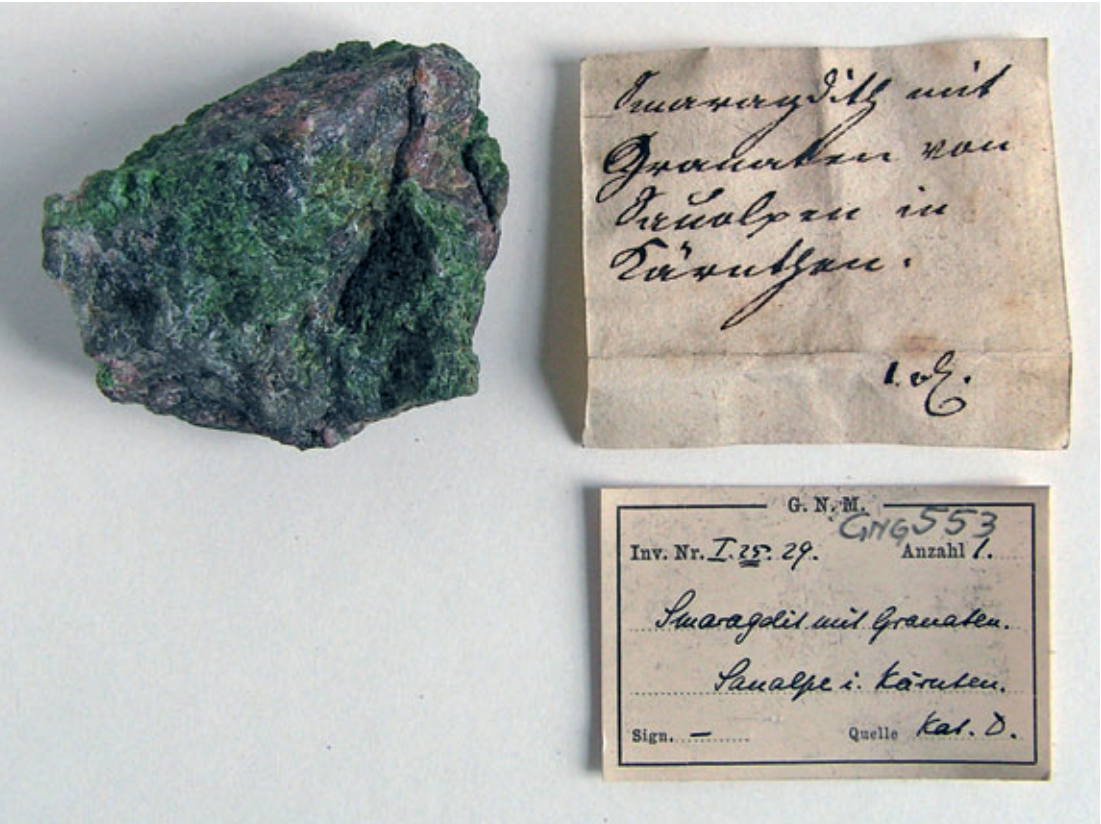 Smaragdith mit
Granaten von
Saualpen in
Kärnthen.
G. N. M.
GNG 553
Inv. Nr. I. 25. 29. Anzahl 1.
Smaragdit mit Granaten.
Saualpe i. Kärnten.
Sign. — Quelle Kat. D.